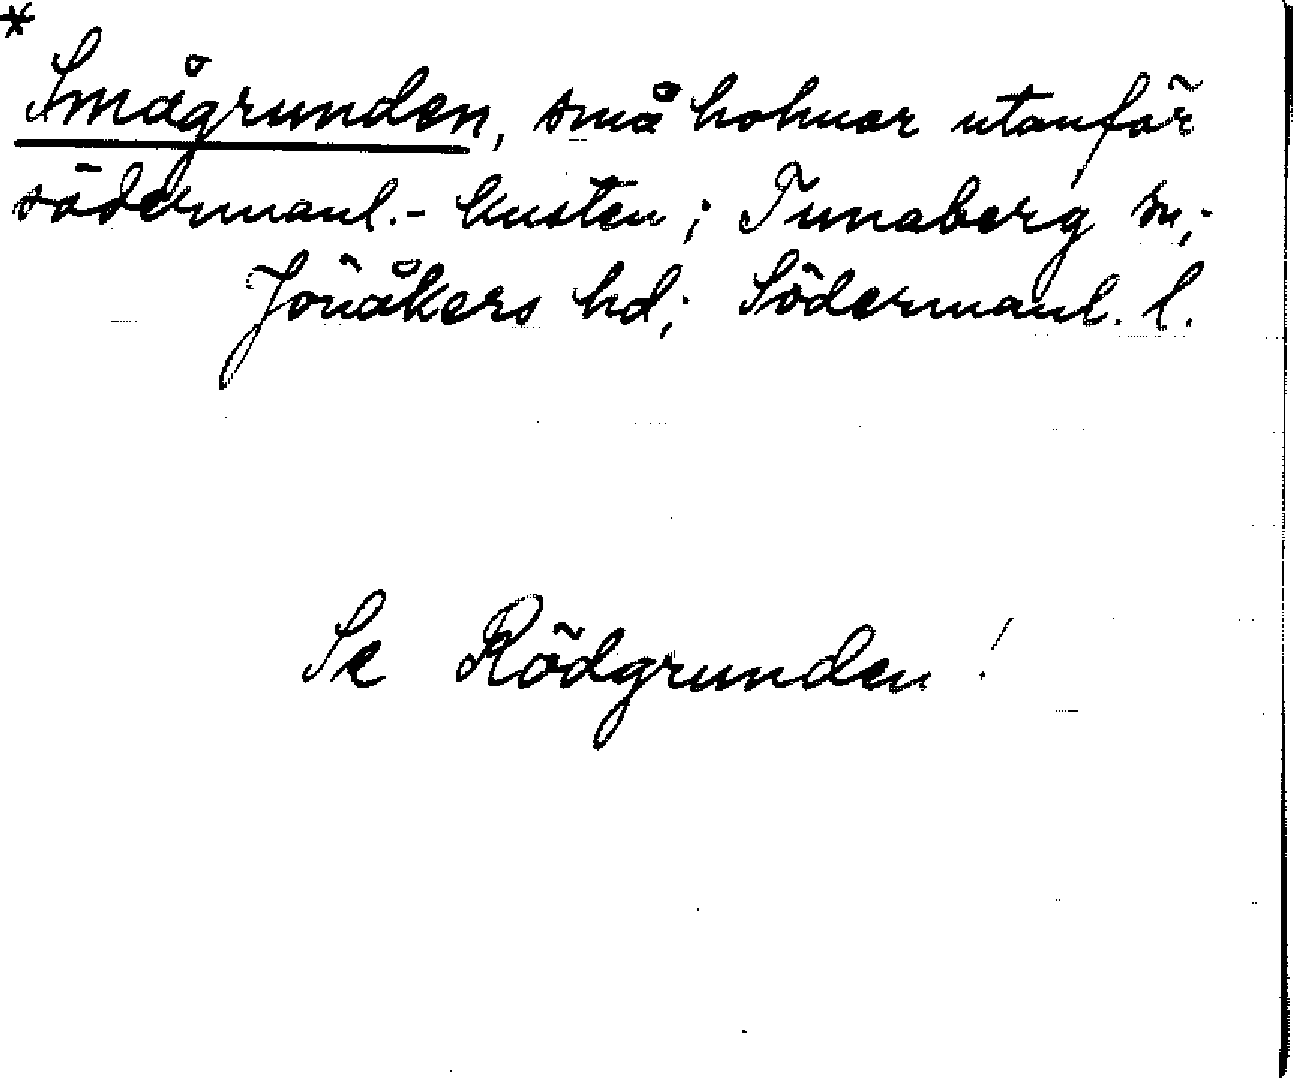 *
Smågrunden, små holmar utanför
södermanl.-kusten; Tunaberg sn,-
Jönåkers hd; Södermanl. l.
Se Rödgrunden!